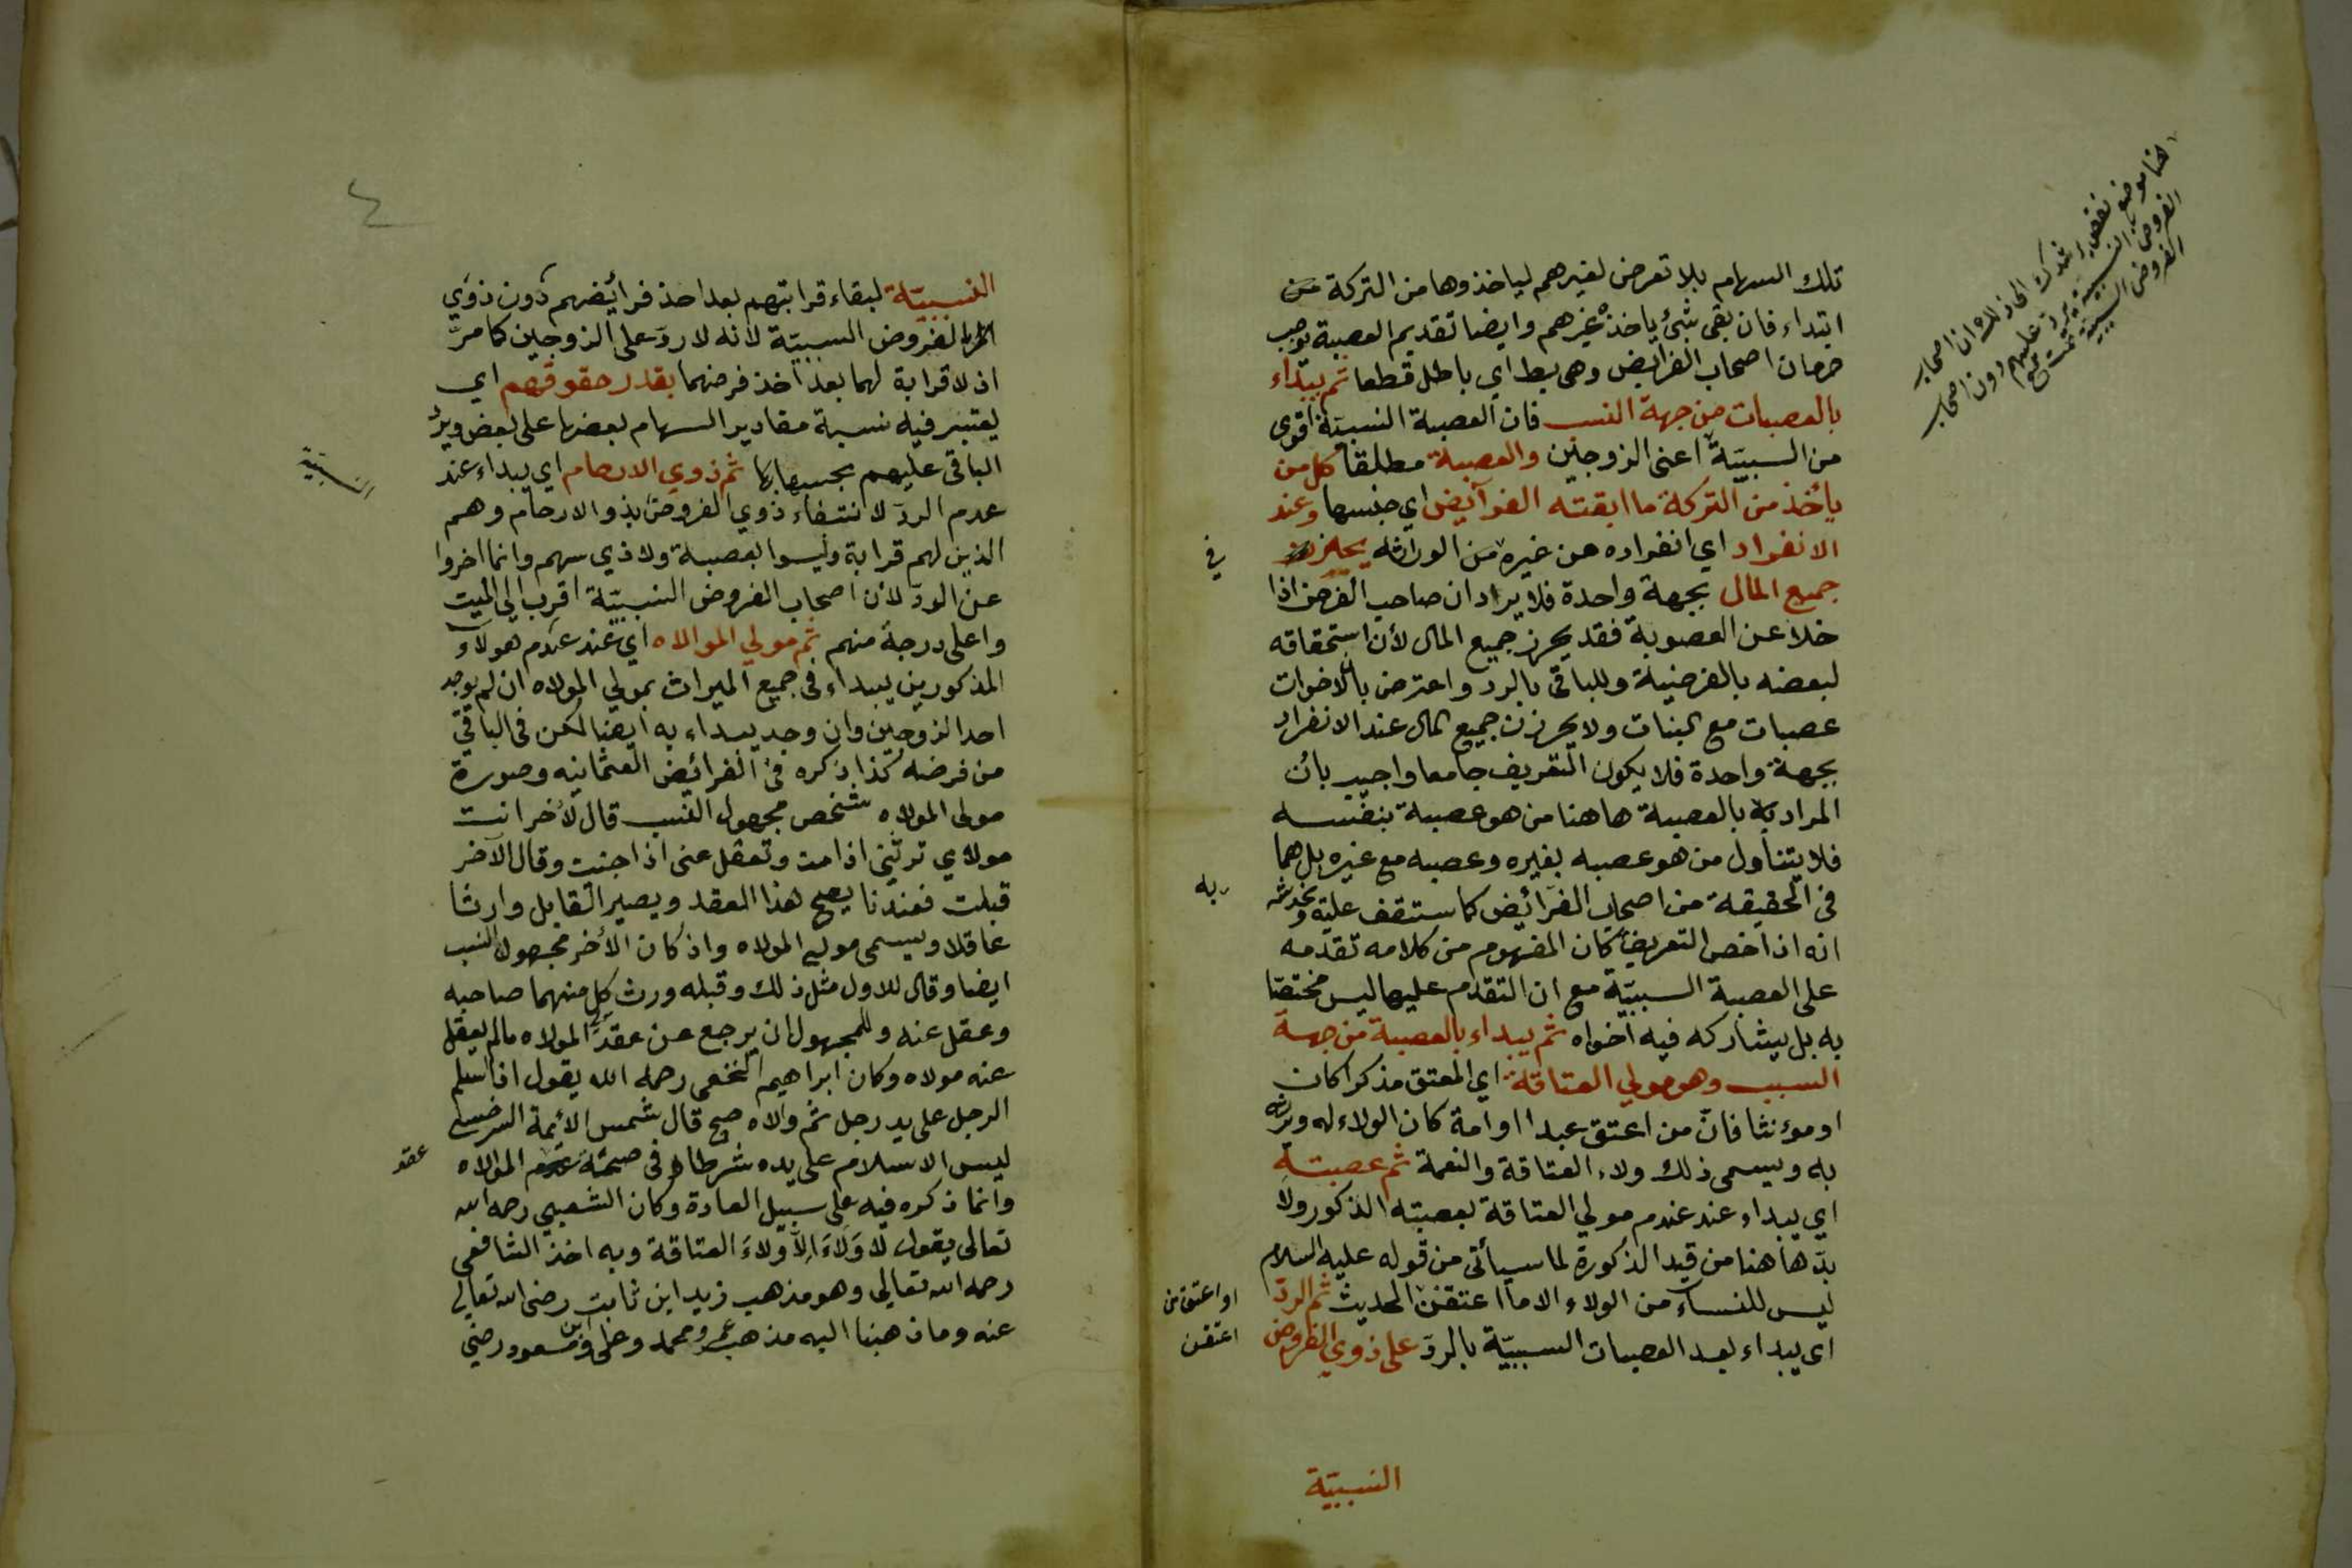 تلك السهام بلا تعرض لغيرهم لياخذوها من التركة من
ابتداء فان بقى شئ ياخذه غيرهم وايضا تقديم العصبة يوجب
حرمان اصحاب الفرائض وهى بط اي باطل قطعا ثم يبتداء
بالعصبات من جهة النسب فان العصبة النسبيّة اقوى
من السببيّة اعنى الزوجين والعصبة مطلقا كل من
يأخذ من التركة ما ابقته الفرآئيض اي جنسها وعند
الانفراد اي انفراده عن غيره من الوراثه يحرز
جميع المال بجهة واحدة فلا يراد ان صاحب الفرض اذا
خلا عن العصوبة فقد يحرز جميع المال لأن استحقاقه
لبعضه بالفرضية وللباقى بالرد واعترض بأن الاخوات
عصبات مع البنات ولا يحرزن جميع المال عند الانفراد
بجهة واحدة فلا يكون التعريف جامعا واجيب بأن
المراد به بالعصبة هاهنا من هو عصبة بنفسه
فلا يتناول من هو عصبه بغيره وعصبه مع غيره بل هما
فى الحقيقة من اصحاب الفرائض كما ستقف عليه ويخدشه
انه اذا خص التعريف كان المفهوم من كلامه تقدمه
على العصبة السببيّة مع ان التقدم عليها ليس مختصّا
به بل يشاركه فيه اخواه ثم يبداء بالعصبة من جهة
السبب وهو مولي العتاقة اي المعتق مذكرا كان
او مؤنثا فانّ من اعتق عبدا او امة كان الولاء له ويرثه
به ويسمى ذلك ولاء العتاقة والنعمة ثم عصبته
اي يبداء عند عدم مولي العتاقة بعصبته الذكور ولا
بدّ هاهنا من قيد الذكورة لما سيأتى من قوله عليه السلام
ليس للنساء من الولاء الا ما اعتقن الحديث ثم الردّ
اى يبداء بعد العصبات السببيّة بالردّ على ذوي الفروض
النسبيّة
في
به
او اعتق من
اعتقن
النسبيّة لبقاء قرابتهم بعد اخذ فرائضهم دون ذوي
الفروض السببيّة لأنه لا ردّ على الزوجين كما مرّ
اذ لا قرابة لهما بعد اخذ فرضهما بقدر حقوقهم اي
يعتبر فيه نسبة مقادير السهام بعضها على بعض ويردّ
الباقى عليهم بحسبها ثم ذوي الارحام اي يبداء عند
عدم الردّ لانتفاء ذوي الفروض بذو الارحام وهم
الذين لهم قرابة وليسوا بعصبة ولا ذي سهم وانما اخروا
عن الردّ لأن اصحاب الفروض النسبيّة اقرب الى الميت
واعلى درجة منهم ثم مولي الموالاه اي عند عدم هولآء
المذكورين يبداء فى جميع الميراث بمولي المولاه ان لم يوجد
احد الزوجين وان وجد يبداء به ايضا لكن فى الباقى
من فرضه كذا ذكره فى الفرائض العثمانيه وصورة
مولى المولاه شخص مجهول النسب قال لأخر انت
مولاي ترثنى اذا مت وتعقل عنى اذا جنيت وقال الآخر
قبلت فعندنا يصح هذا العقد ويصير القابل وارثا
عاقلا ويسمى مولي المولاه واذ كان الأخر مجهول النسب
ايضا وقال للاول مثل ذلك وقبله ورث كل منهما صاحبه
وعقل عنه وللمجهول ان يرجع عن عقد المولاه مالم يعقل
عنه مولاه وكان ابراهيم النخعى رحمه الله يقول اذا اسلم
الرجل على يد رجل ثم والاه صح قال شمس الأئمة السرخسى
ليس الاسلام على يده شرطا فى صحة المولاه
وانما ذكره فيه على سبيل العادة وكان الشعبي رحمه الله
تعالى يقول لا وَلاَءَ اِلاَّ وَلاءَ العتاقة وبه اخذ الشافعى
رحمه الله تعالي وهو مذهب زيد ابن ثابت رضى الله تعالي
عنه وما ذهبنا اليه مذهب عمر ومحمد وعلى وابن مسعود رضي
عقد
٤